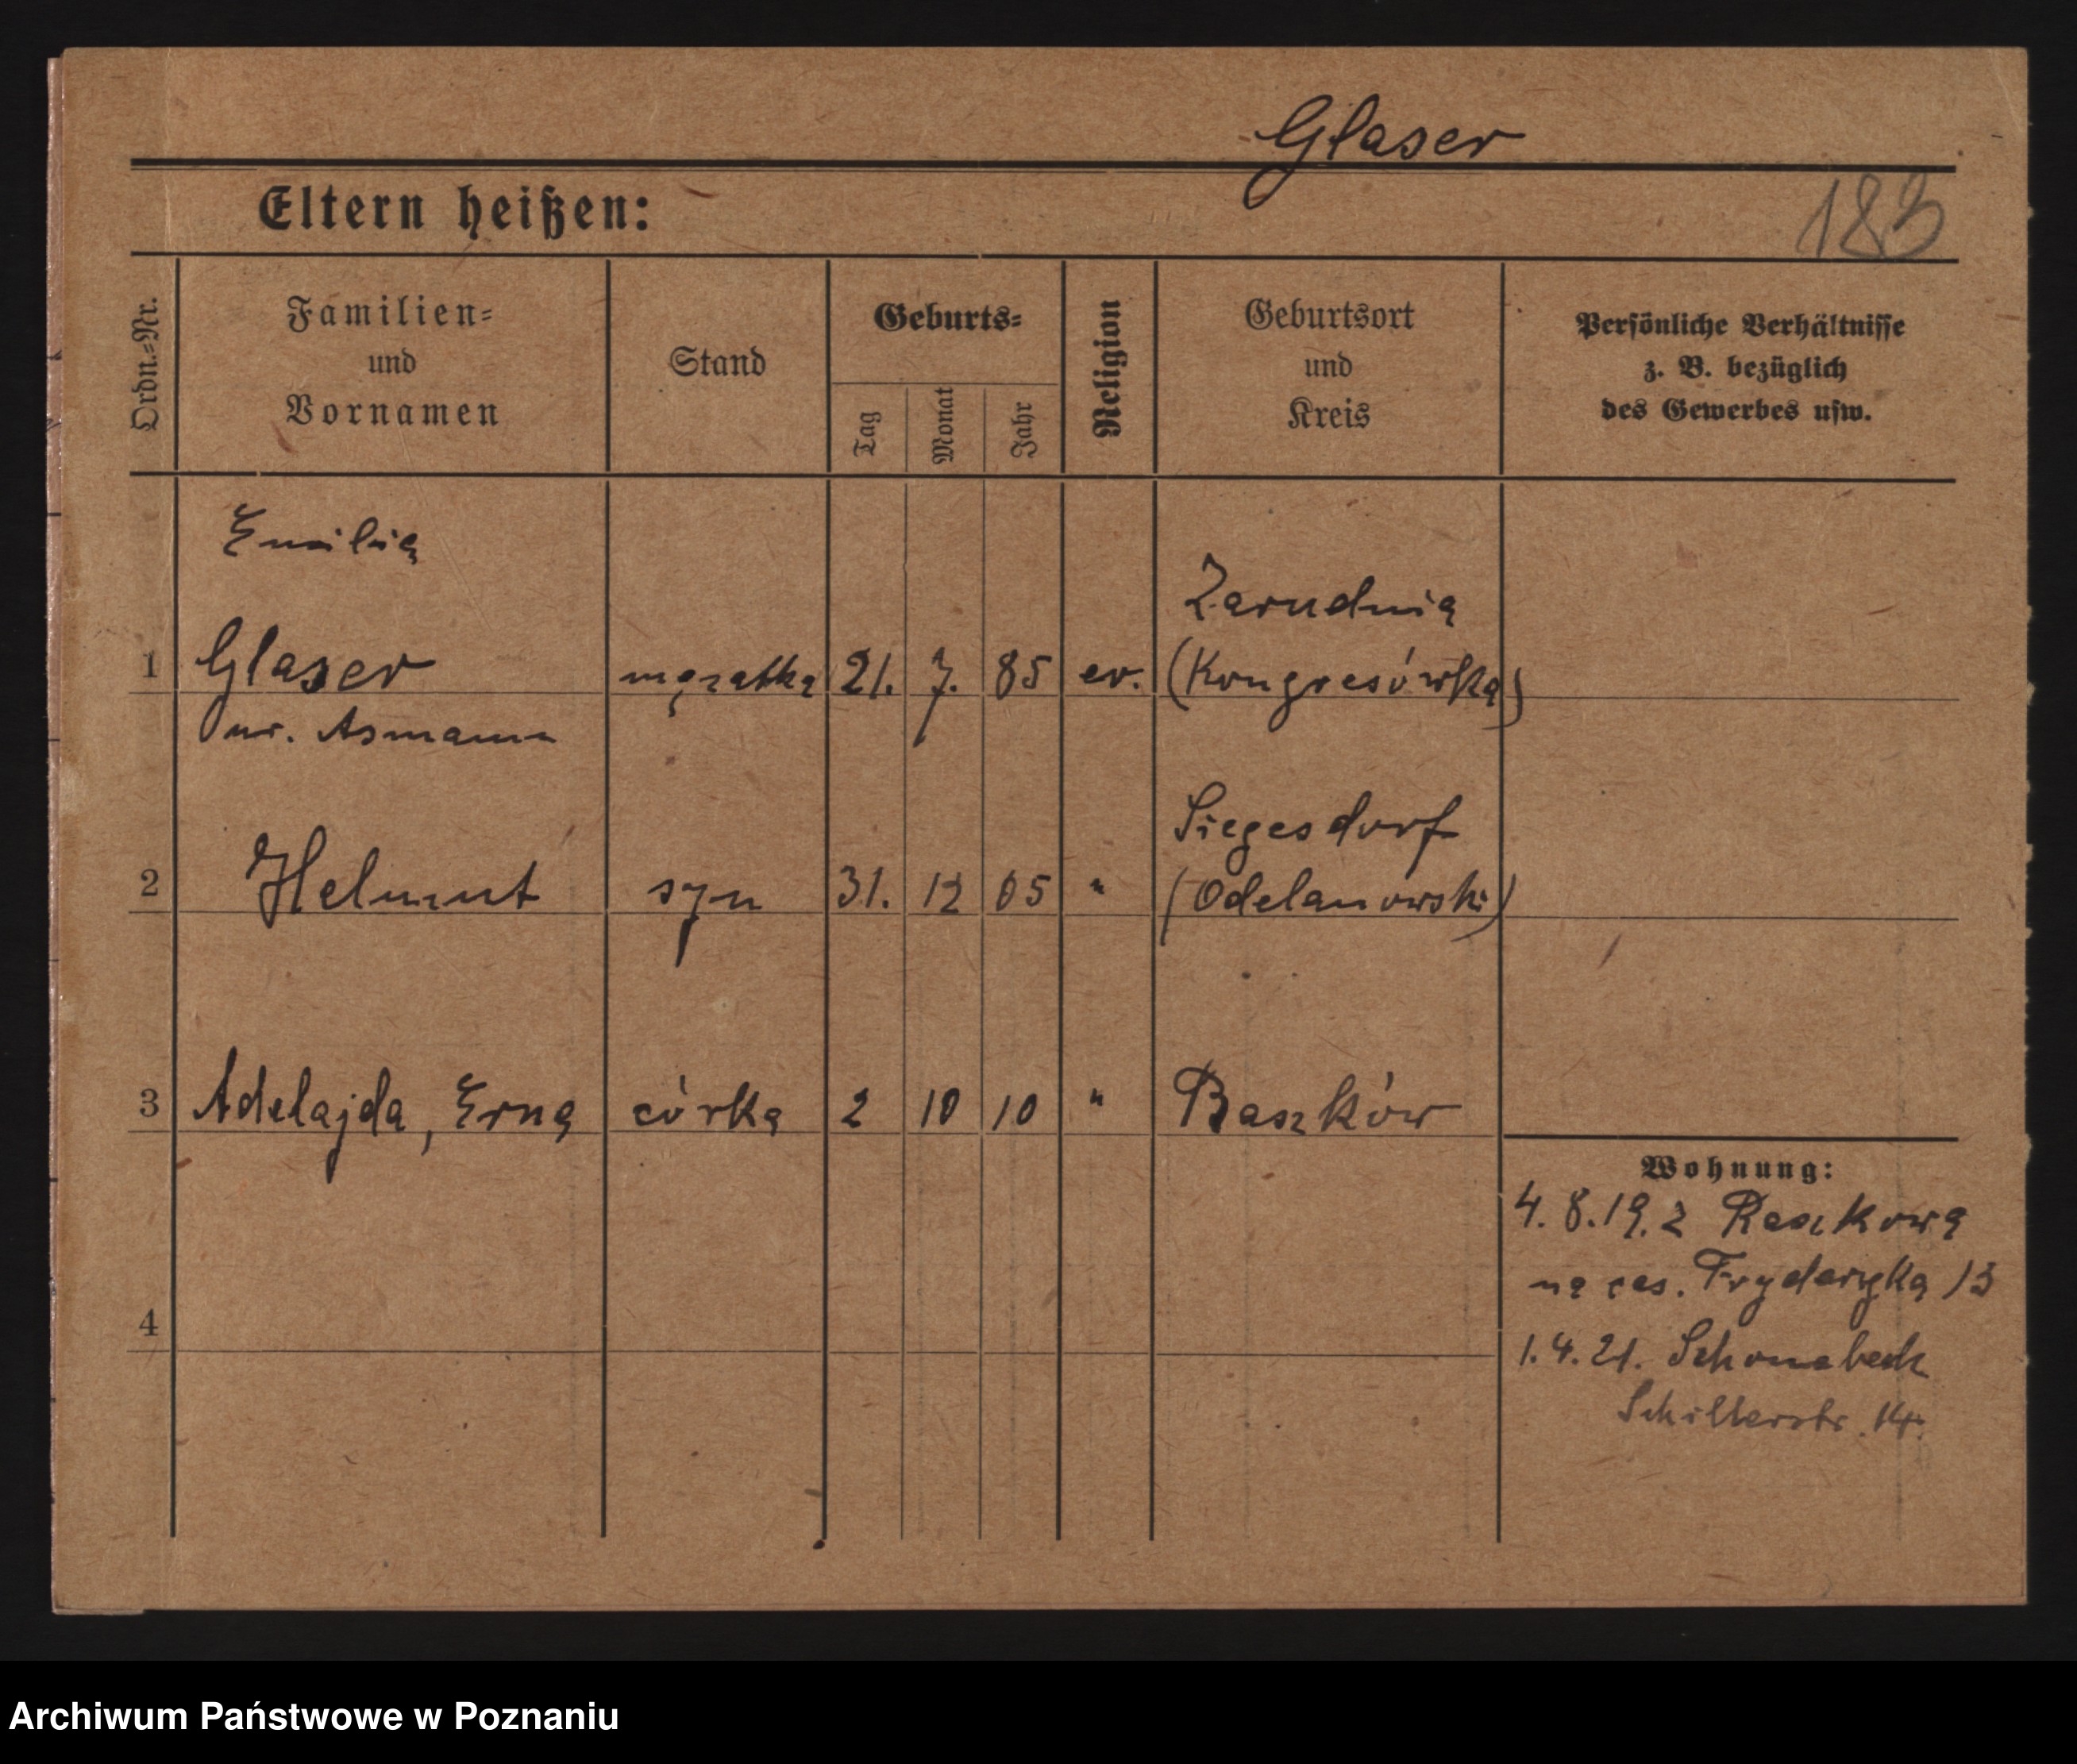 Glaser
183
Eltern heißen:
Ordn.-Nr.
Familien-
und
Vornamen
Stand
Geburts-
Tag
Monat
Jahr
Religion
Geburtsort
und
Kreis
Persönliche Verhältnisse
z. B. bezüglich
des Gewerbes usw.
Emilia
1 Glaser mężatka 21. 7. 85 ev. Zarudnia
(Kongresówka)
ur. Asmann
Siegesdorf
2 Helmut syn 31. 12 05 " (Odelanowski)
3 Adelajda, Erna córka 2 10 10 " Baszków
Wohnung:
4. 8. 19. z Raszkowa
na ces. Fryderyka 13
4
1. 4. 21. Schonebeck
Schillerstr. 14.
Archiwum Państwowe w Poznaniu